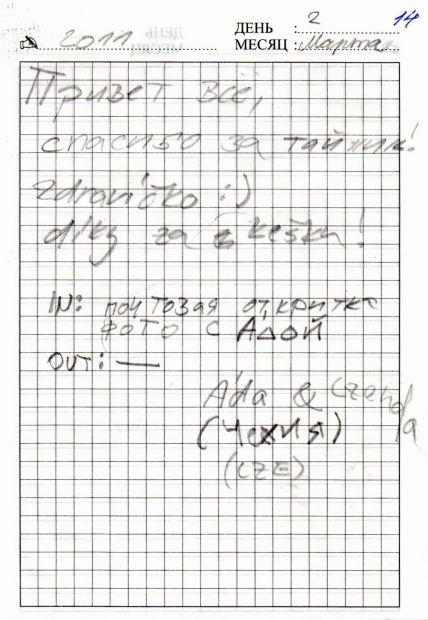 ДЕНЬ : 2 14
2011 МЕСЯЦ : Марта
Привет все,
спасибо за тайник!
Zdravíčko :)
díky za kešku!
IN: почтовая откритка
ФОТО С АДОЙ
OUT: —
Áda & Czenda
(Чехия)
(CZE)